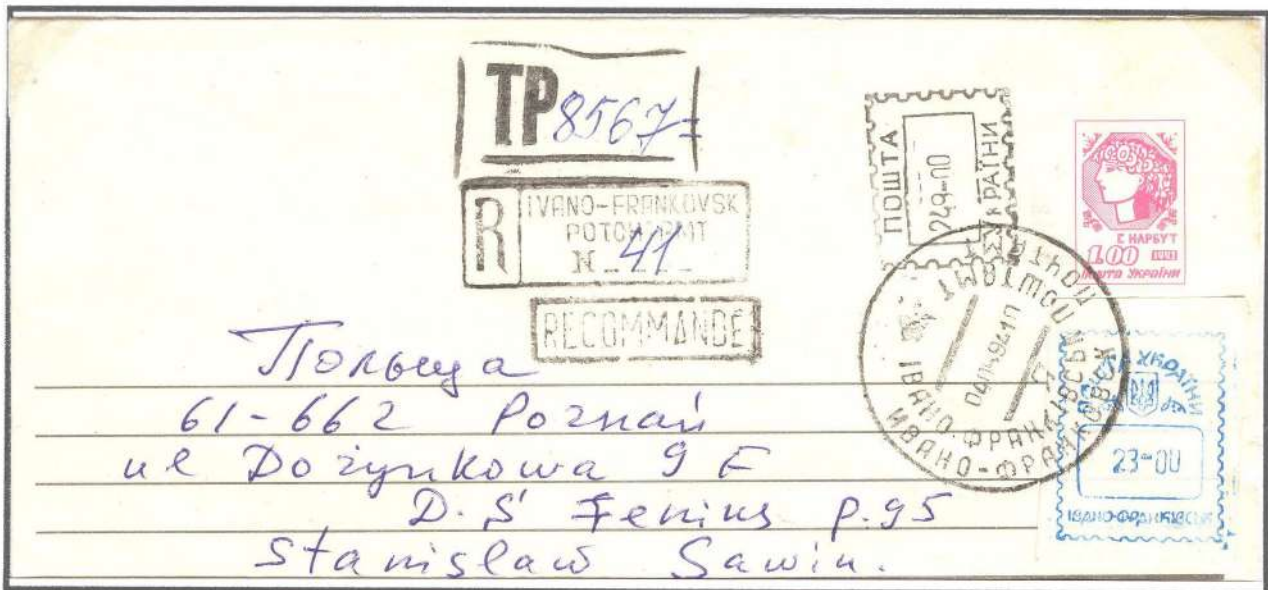 TP 8567
R IVANO-FRANKOVSK
POTCHTAMT
N 41
RECOMMANDE
ПОШТА УКРАЇНИ
249-00
Г. НАРБУТ
1.00 1993
Пошта України
ПОШТАМТ
ПОЧТАМТ
ІВАНО-ФРАНКІВСЬК
ИВАНО-ФРАНКОВСК
ПОШТА УКРАЇНИ
23-00
ІВАНО-ФРАНКІВСЬК
Польща
61-662 Poznań
ul Dożynkowa 9 F
D.S Fenius p.95
Stanislaw Sawin.